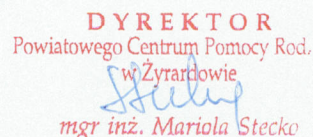 DYREKTOR
Powiatowego Centrum Pomocy Rod.
w Żyrardowie
mgr inż. Mariola Stecko